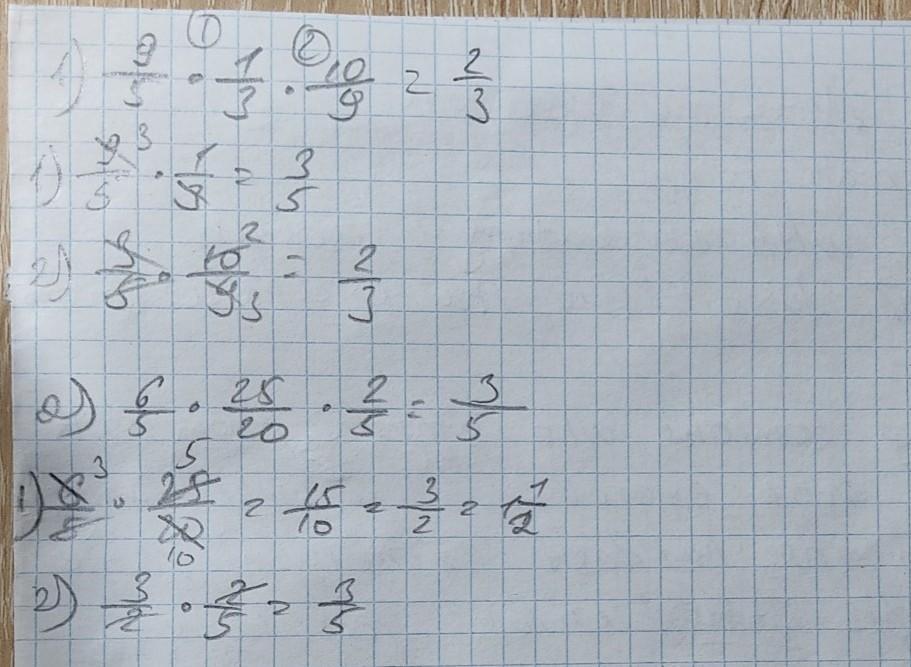 ① ②
1) 9/5 · 1/3 · 10/9 = 2/3
1) 9/5 3 · 1/9 = 3/5
2) 9/5 · 10/9 2 3 = 2/3
2) 6/5 · 25/20 · 2/5 = 3/5
1) 6/5 3 · 25/20 5 10 = 15/10 = 3/2 = 1 1/2
2) 3/2 · 2/5 = 3/5